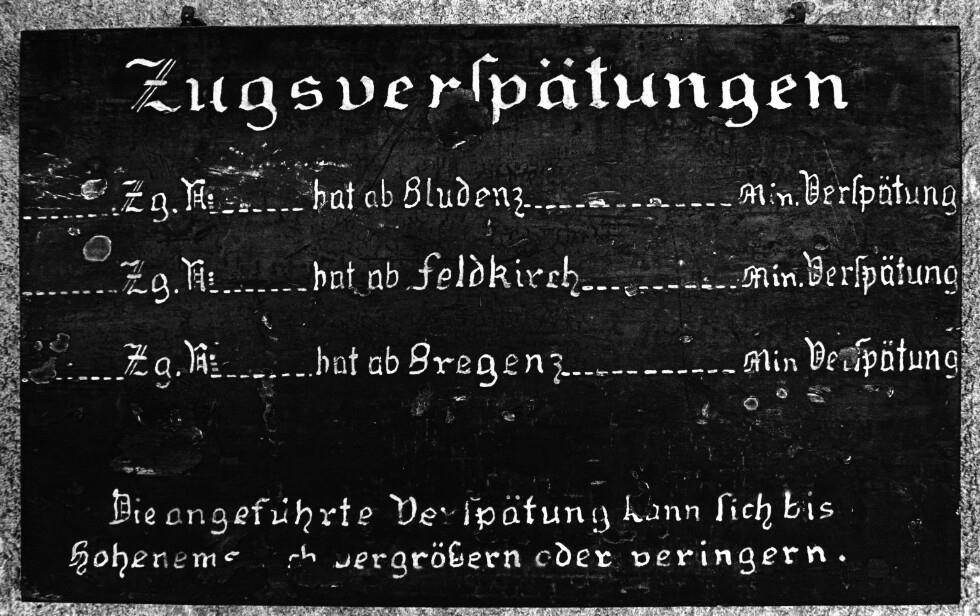 Zugsverspätungen
Zg. N: hat ab Bludenz Min. Verspätung
Zg. N: hat ab Feldkirch Min. Verspätung
Zg. N: hat ab Bregenz Min Verspätung
Die angeführte Verspätung kann sich bis
vergrößern oder veringern.